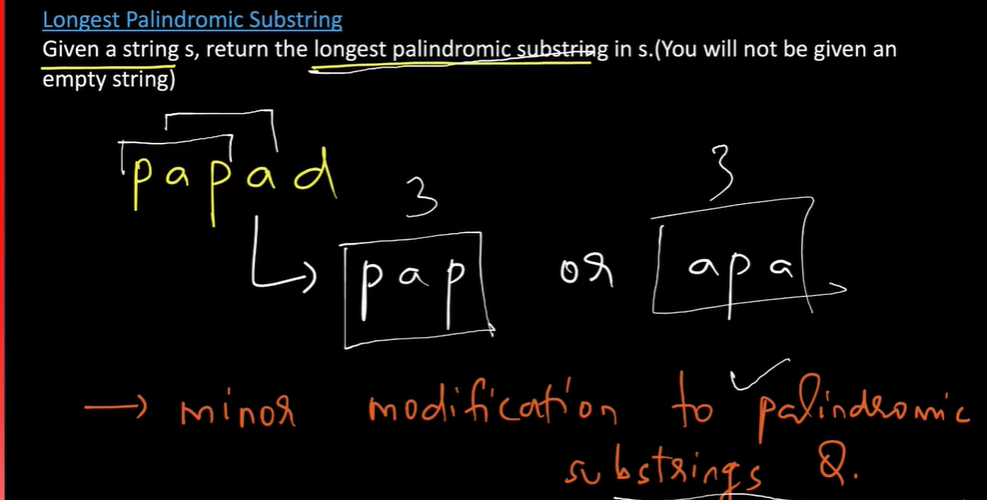 Longest Palindromic Substring
Given a string s, return the longest palindromic substring in s.(You will not be given an
empty string)
papad
3 3
pap or apa
→ minor modification to palindromic
substrings Q.